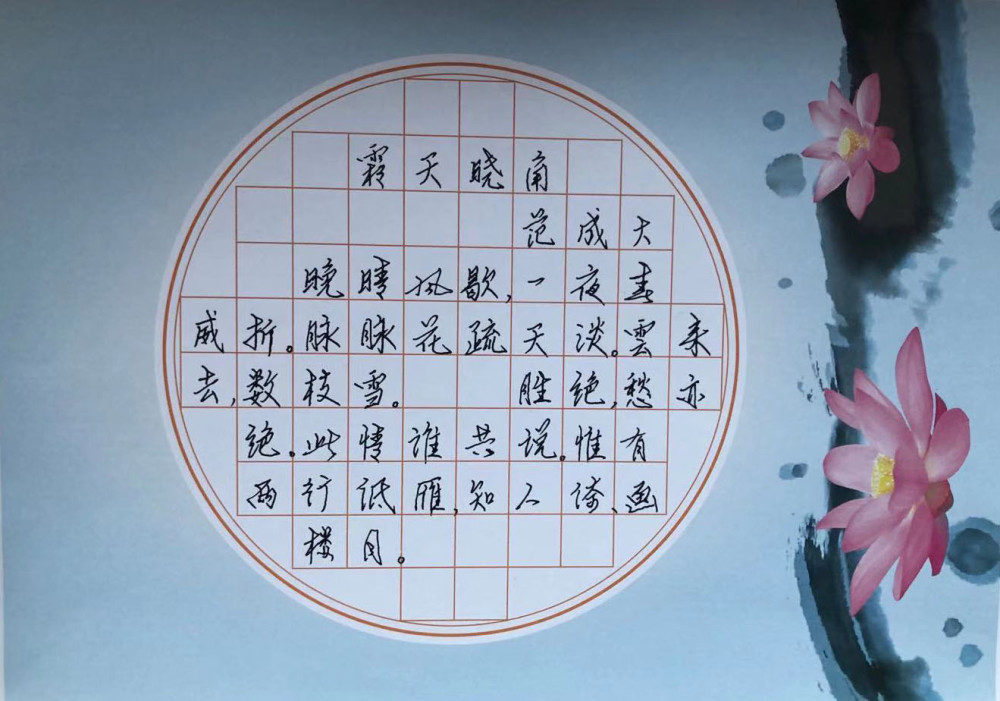 霜天晓角
范成大
晚晴风歇,一夜春
威折。脉脉花疏天淡。雲来
去,数枝雪。 胜绝,愁亦
绝。此情谁共说。惟有
两行低雁,知人倚、画
楼月。